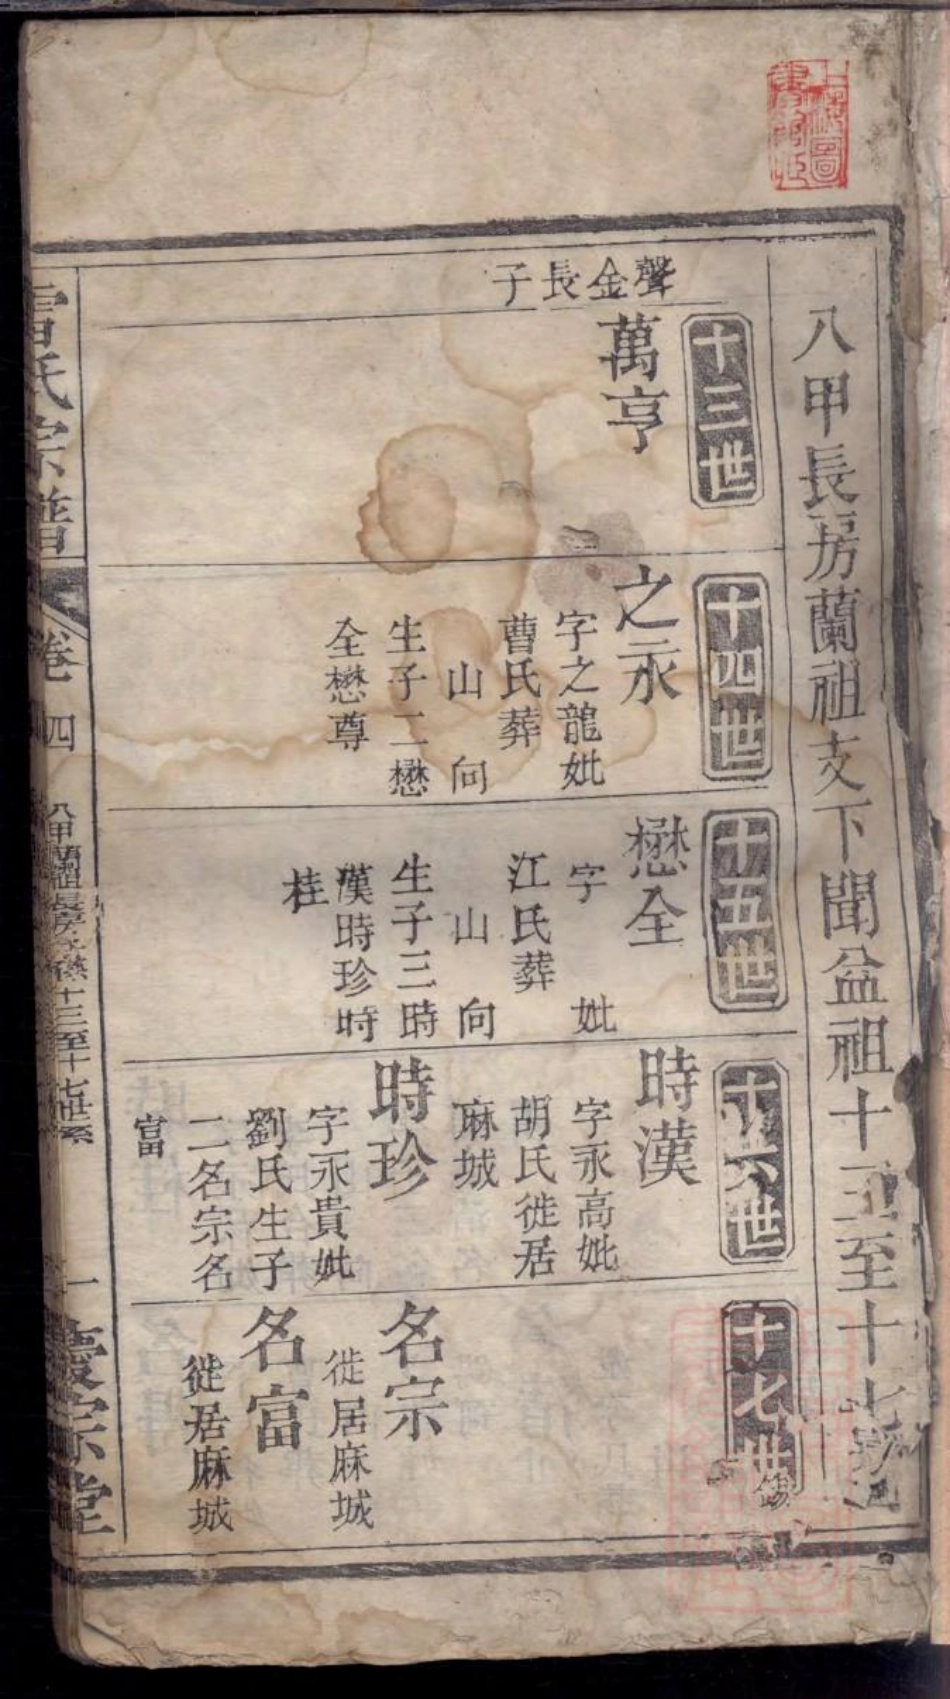 八甲長房蘭祖支下聞盆祖十五至十七
聲金長子
十三世
萬亨
十四世
之永
字之龍妣
曹氏葬
山 向
生子二懋
全懋尊
十五世
懋全
字 妣
江氏葬
山 向
生子三時
漢時珍時
桂
十六世
時漢
字永高妣
胡氏徙居
麻城
時珍
字永貴妣
劉氏生子
二名宗名
富
十七世
名宗
徙居麻城
名富
徙居麻城
氏宗譜
卷四
八甲蘭祖長房 十三至十七世系
一
慶宗堂